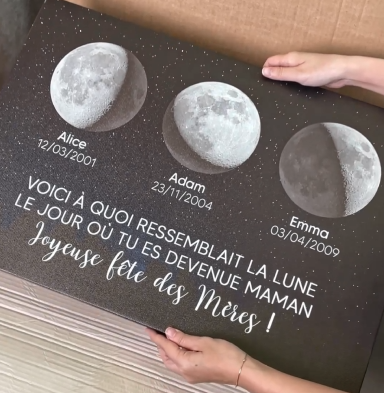 Alice
12/03/2001
Adam
23/11/2004
Emma
03/04/2009
VOICI À QUOI RESSEMBLAIT LA LUNE
LE JOUR OÙ TU ES DEVENUE MAMAN
Joyeuse fête des Mères !